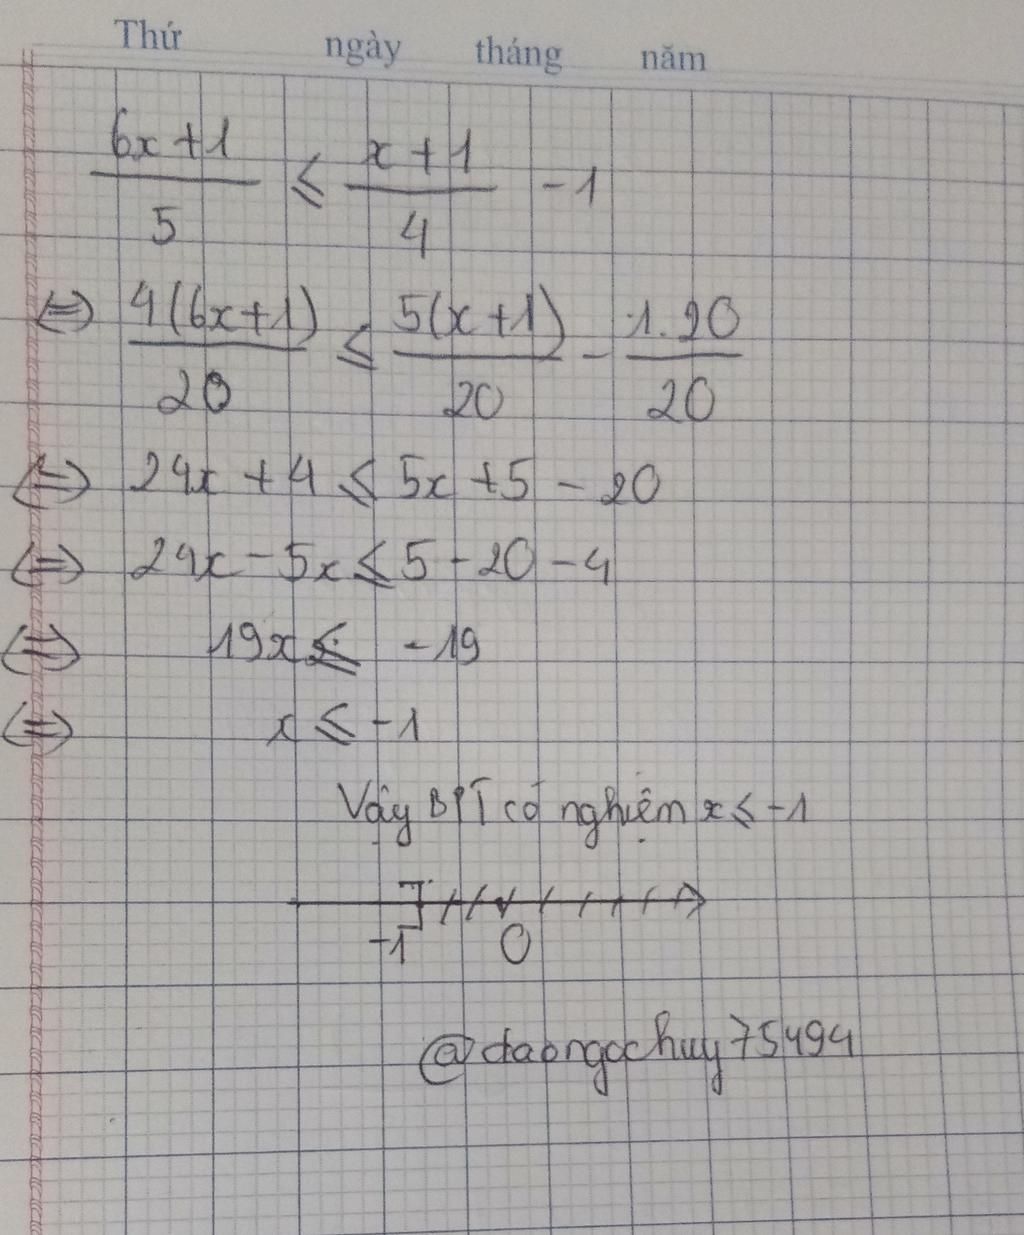 Thứ ngày tháng năm
(6x+1)/5 ≤ (x+1)/4 - 1
⇔ 4(6x+1)/20 ≤ 5(x+1)/20 - 1.20/20
⇔ 24x + 4 ≤ 5x + 5 - 20
⇔ 24x - 5x ≤ 5 - 20 - 4
⇔ 19x ≤ -19
⇔ x ≤ -1
Vậy BPT có nghiệm x ≤ -1
-1 0
@daongochuy75494